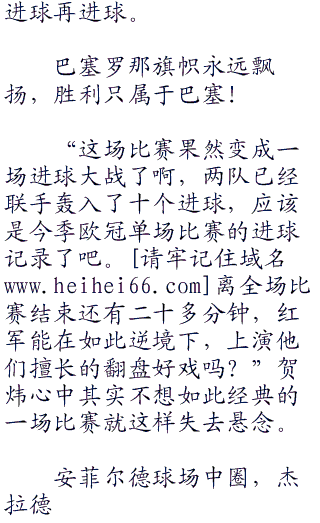 进球再进球。
巴塞罗那旗帜永远飘
扬，胜利只属于巴塞！
“这场比赛果然变成一
场进球大战了啊，两队已经
联手轰入了十个进球，应该
是今季欧冠单场比赛的进球
记录了吧。[请牢记住域名
www.heihei66.com]离全场比
赛结束还有二十多分钟，红
军能在如此逆境下，上演他
们擅长的翻盘好戏吗？”贺
炜心中其实不想如此经典的
一场比赛就这样失去悬念。
安菲尔德球场中圈，杰
拉德